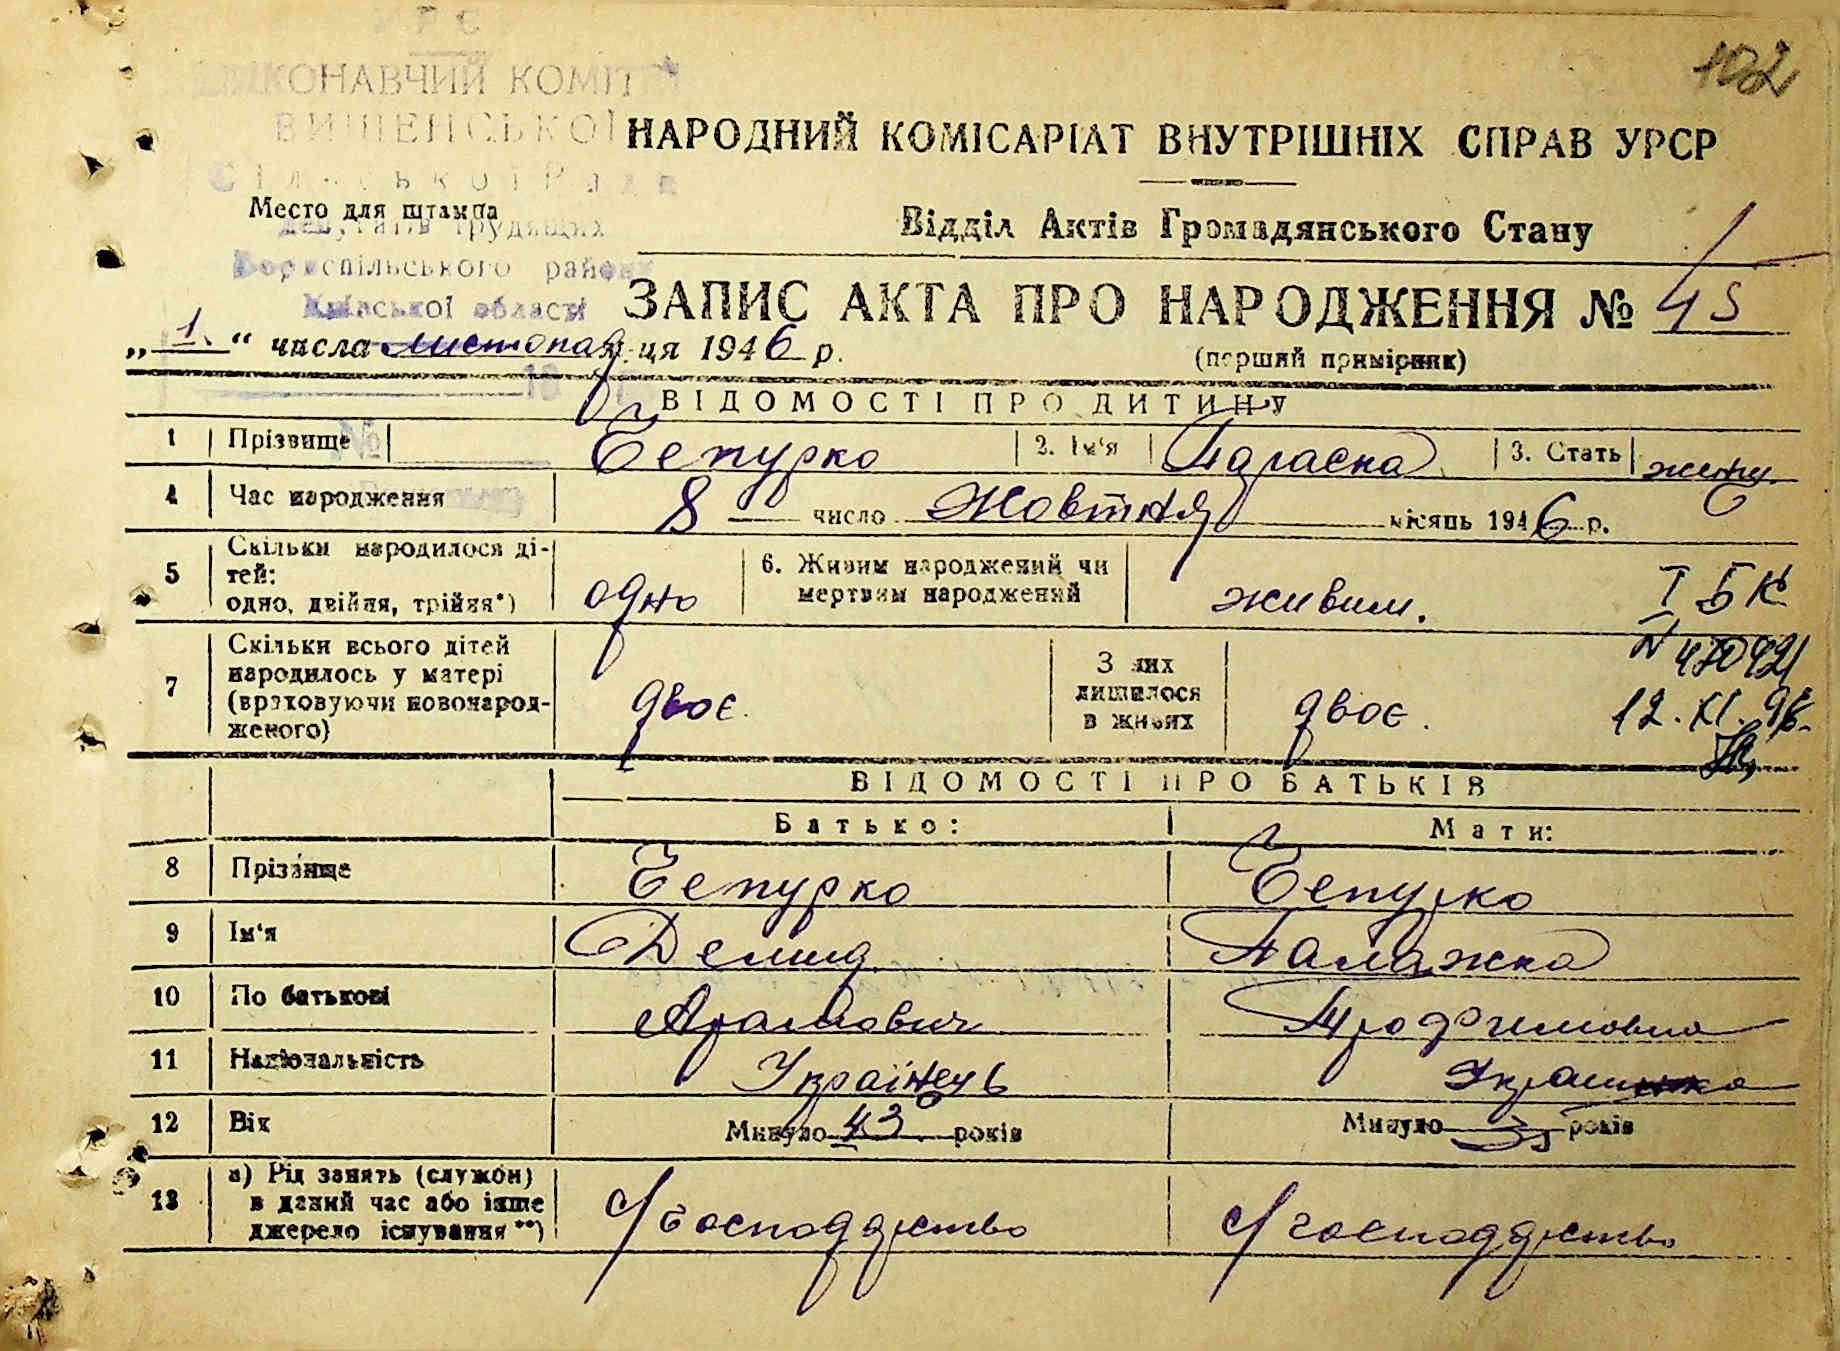 102
УРСР
ВИКОНАВЧИЙ КОМІТЕТ
ВИШЕНСЬКОЇ
Сільської Ради
депутатів трудящих
Бориспільського району
Київської області
НАРОДНИЙ КОМІСАРІАТ ВНУТРІШНІХ СПРАВ УРСР
Место для штампа
Відділ Актів Громадянського Стану
ЗАПИС АКТА ПРО НАРОДЖЕННЯ № 45
„ 1. “ числа листопад м-ця 1946 р.
(перший примірник)
ВІДОМОСТІ ПРО ДИТИНУ
1 Прізвище Чепурко 2. Ім'я Параска 3. Стать жіноч.
4 Час народження 8 число Жовтня місяць 1946 р.
5 Скільки народилося ді-
тей:
одно, двійня, трійня*) одно 6. Живим народжений чи
мертвим народжений живим.
І БК
N
12. XI. 96.
7 Скільки всього дітей
народилось у матері
(враховуючи новонарод-
женого) двоє. З них
лишилося
в живих двоє.
ВІДОМОСТІ ПРО БАТЬКІВ
Батько: Мати:
8 Прізвище Чепурко Чепурко
9 Ім'я Демид Палажка
10 По батькові Трофимовна
11 Національність Українець Украинка
12 Вік Минуло 43 років Минуло 35 років
13 а) Рід занять (служби)
в даний час або інше
джерело існування **) с/господарство с/господарство